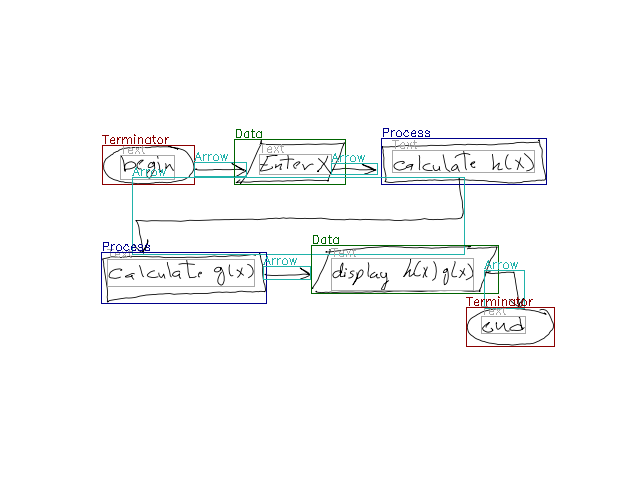 Terminator
Text
begin
Arrow
Arrow
Data
Text
Enter X
Arrow
Process
Text
calculate h(x)
Process
Text
calculate g(x)
Arrow
Data
Text
display h(x) g(x)
Arrow
Terminator
Text
end